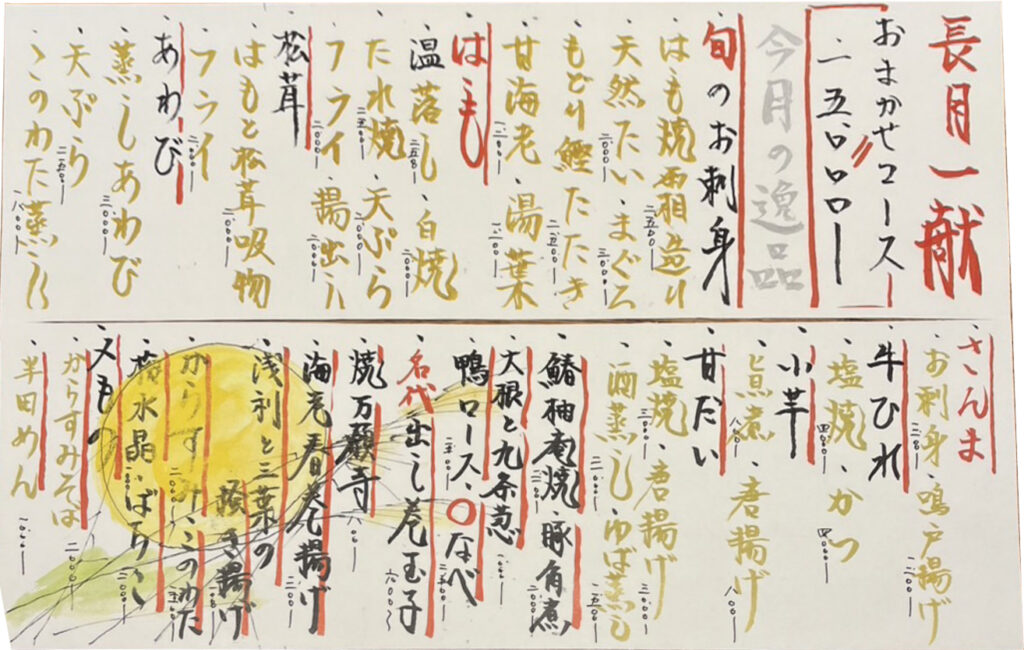 長月一献
おまかせコース
一五、〇〇〇ー
今月の逸品
旬のお刺身
・はも焼霜造り 二五〇〇ー
・天然たい 二〇〇〇ー ・まぐろ 三〇〇〇ー
・もどり鰹たたき 二五〇〇ー
・甘海老 ・湯葉
・はも
温 落し ・白焼 二〇〇〇ー
・たれ焼 ・天ぷら
・フライ 二〇〇〇ー ・揚出し 二〇〇〇ー
・松茸
・はもと松茸吸物 二〇〇〇ー
・フライ
・あわび
・蒸しあわび 三〇〇〇ー
・天ぷら 二五〇〇ー
・このわた蒸し 一八〇〇ー
・さんま
・お刺身 ・鳴戸揚げ
・牛ひれ
・塩焼 四〇〇〇ー ・かつ 四〇〇〇ー
・小芋
・旨煮 八〇〇ー ・唐揚げ 八〇〇ー
・甘だい
・塩焼 三〇〇〇ー ・唐揚げ 三〇〇〇ー
・酒蒸し ・ゆば蒸し
・鰆柚庵焼 ・豚角煮 二〇〇〇ー
・大根と九条葱
・鴨ロース ・〇なべ
・名代 出し巻玉子
・焼万願寺
・海老春巻揚げ 二〇〇〇ー
・浅利と三葉の
掻き揚げ
・からすみ ・このわた
・梅水晶 ・ばちこ 二〇〇〇ー
・〆もの
・からすみそば 二〇〇〇ー
・半田めん 一〇〇〇ー